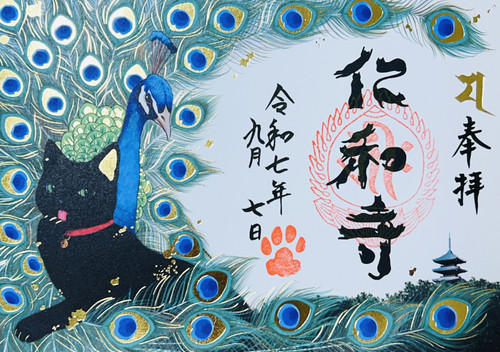 奉拝
仁和寺
令和七年
九月七日